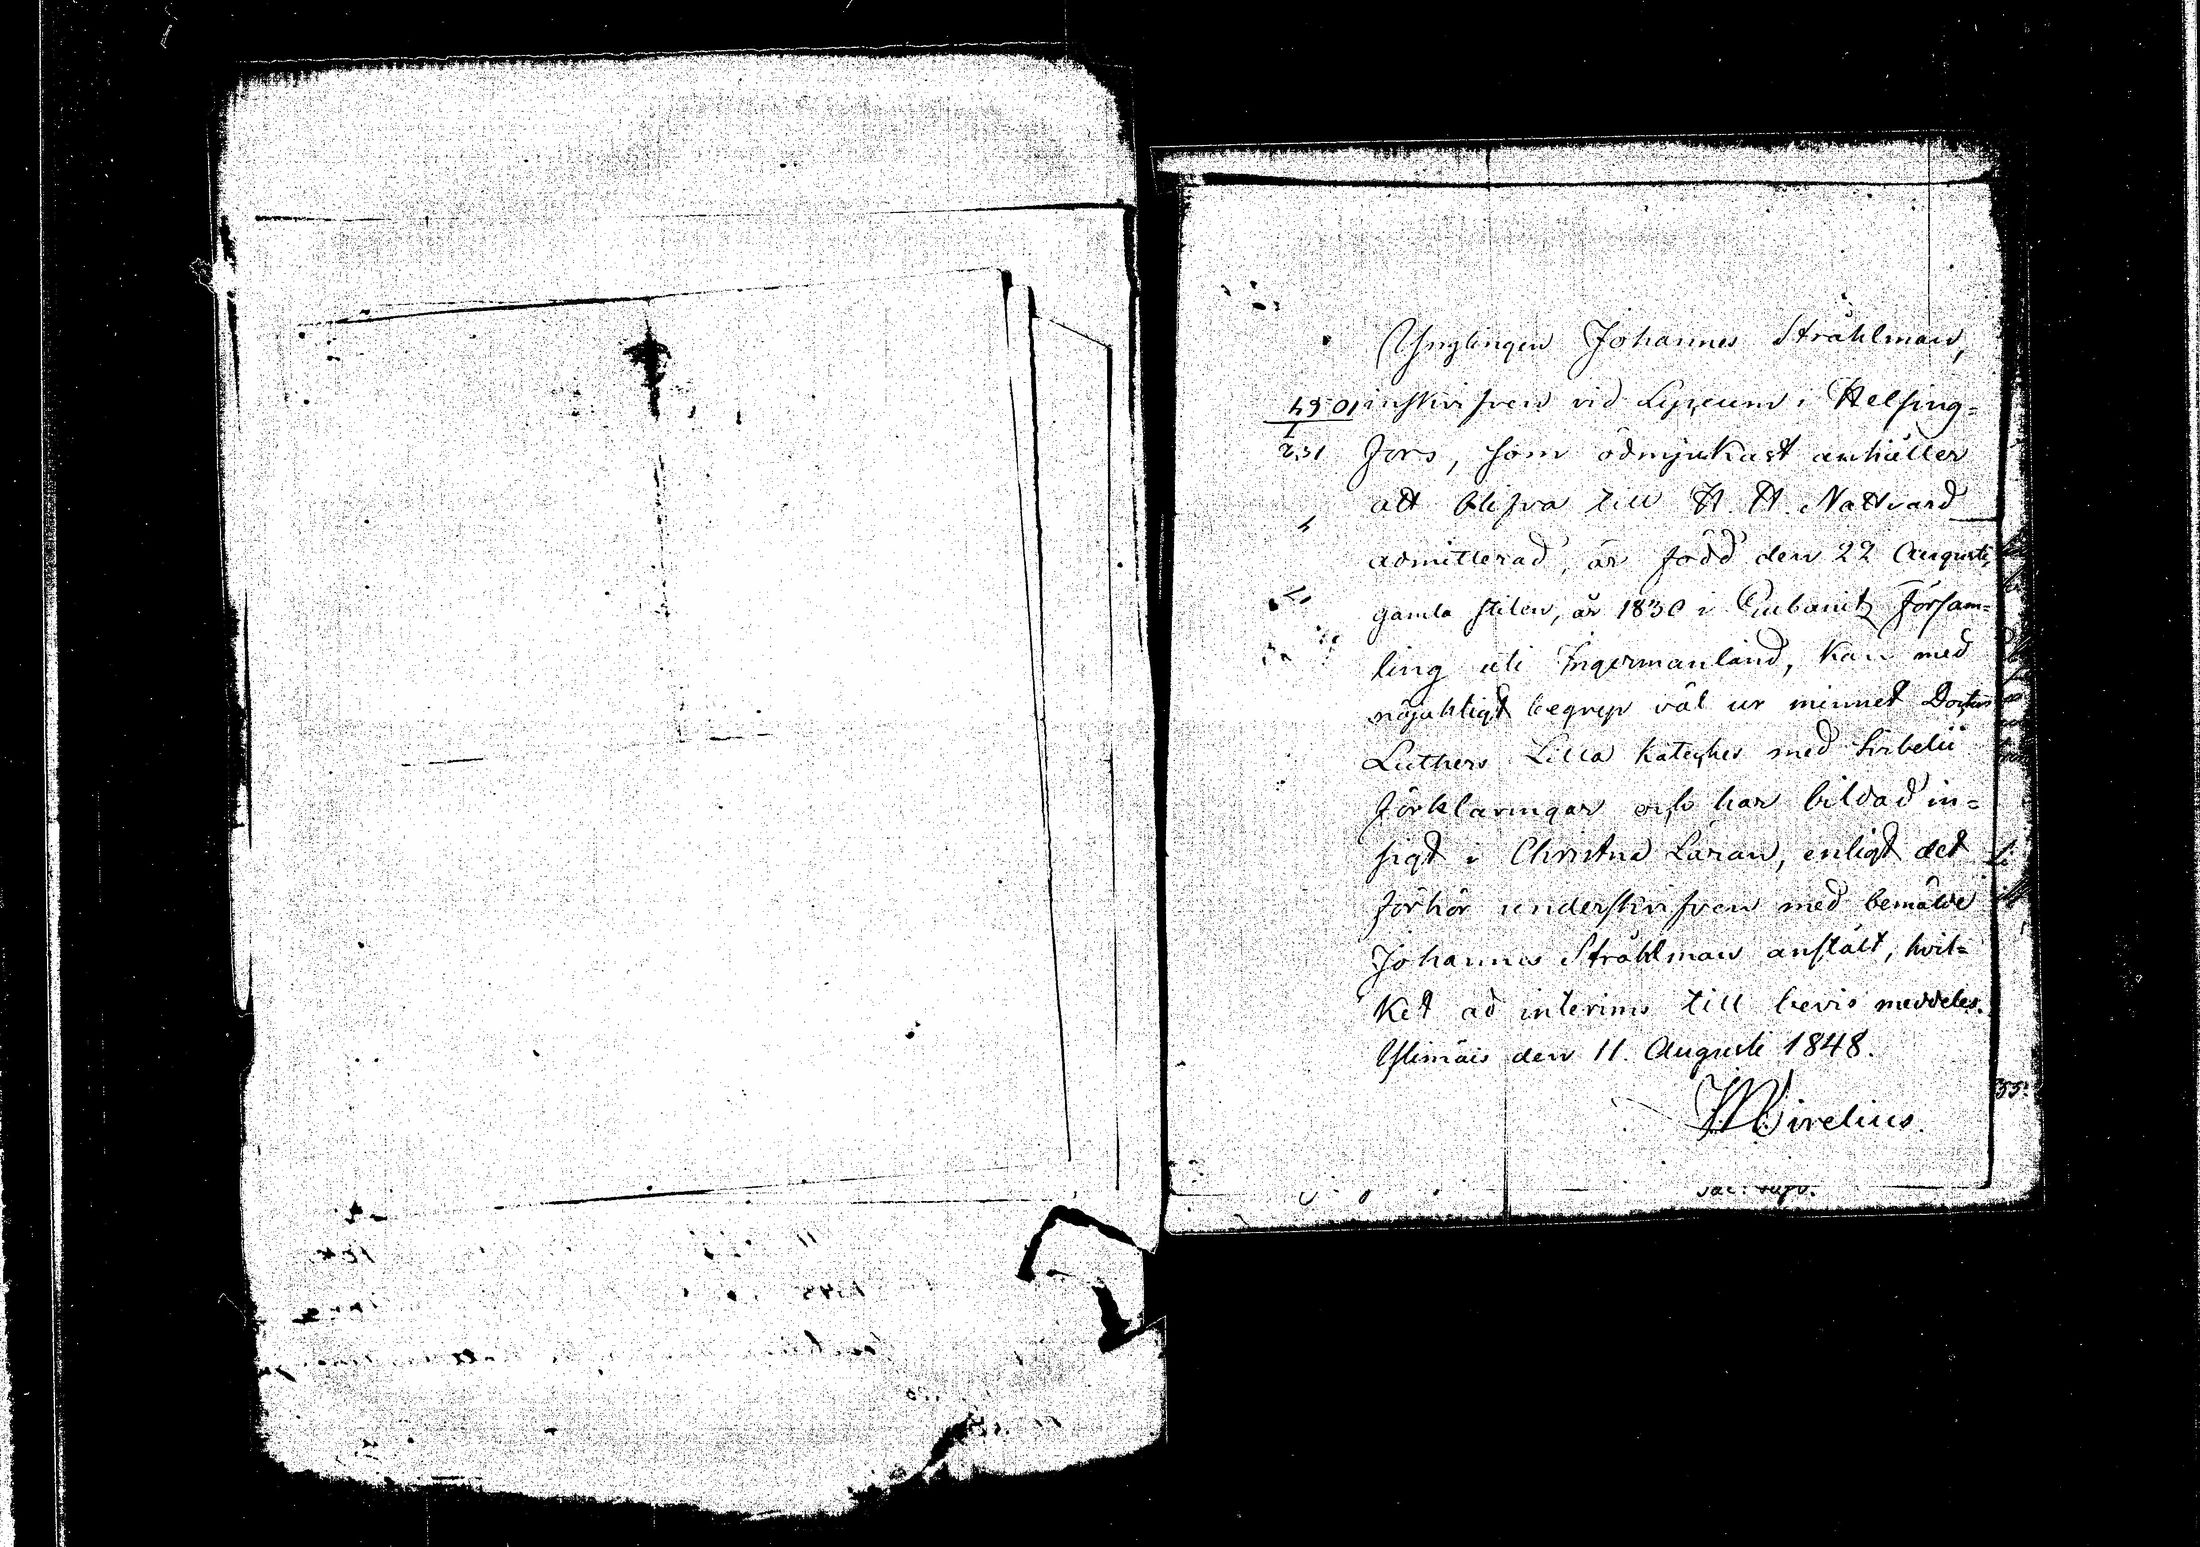 Ynglingen Johannes Stråhlman,
inskrifven vid Lyceum i Helsing=
fors, som ödmjukast anhåller
att blifva till H. H. Nattvard
admitterad, är född den 22 Augusti,
gamla stilen, år 1830 i Gubanitz Försam=
ling uti Ingermanland, kan med
nöjaktigt begrep väl ur minnet Doctors
Luthers Lilla kateches med Svebelii
förklaringar och har bildad in=
sigt i Christna Läran, enligt det
förhör underskrifven med bemälde
Johannes Stråhlman anstält, hvil=
ket ad interims till bevis meddeles.
Istimäis den 11. Augusti 1848.
Wirelius.
sac: supr.